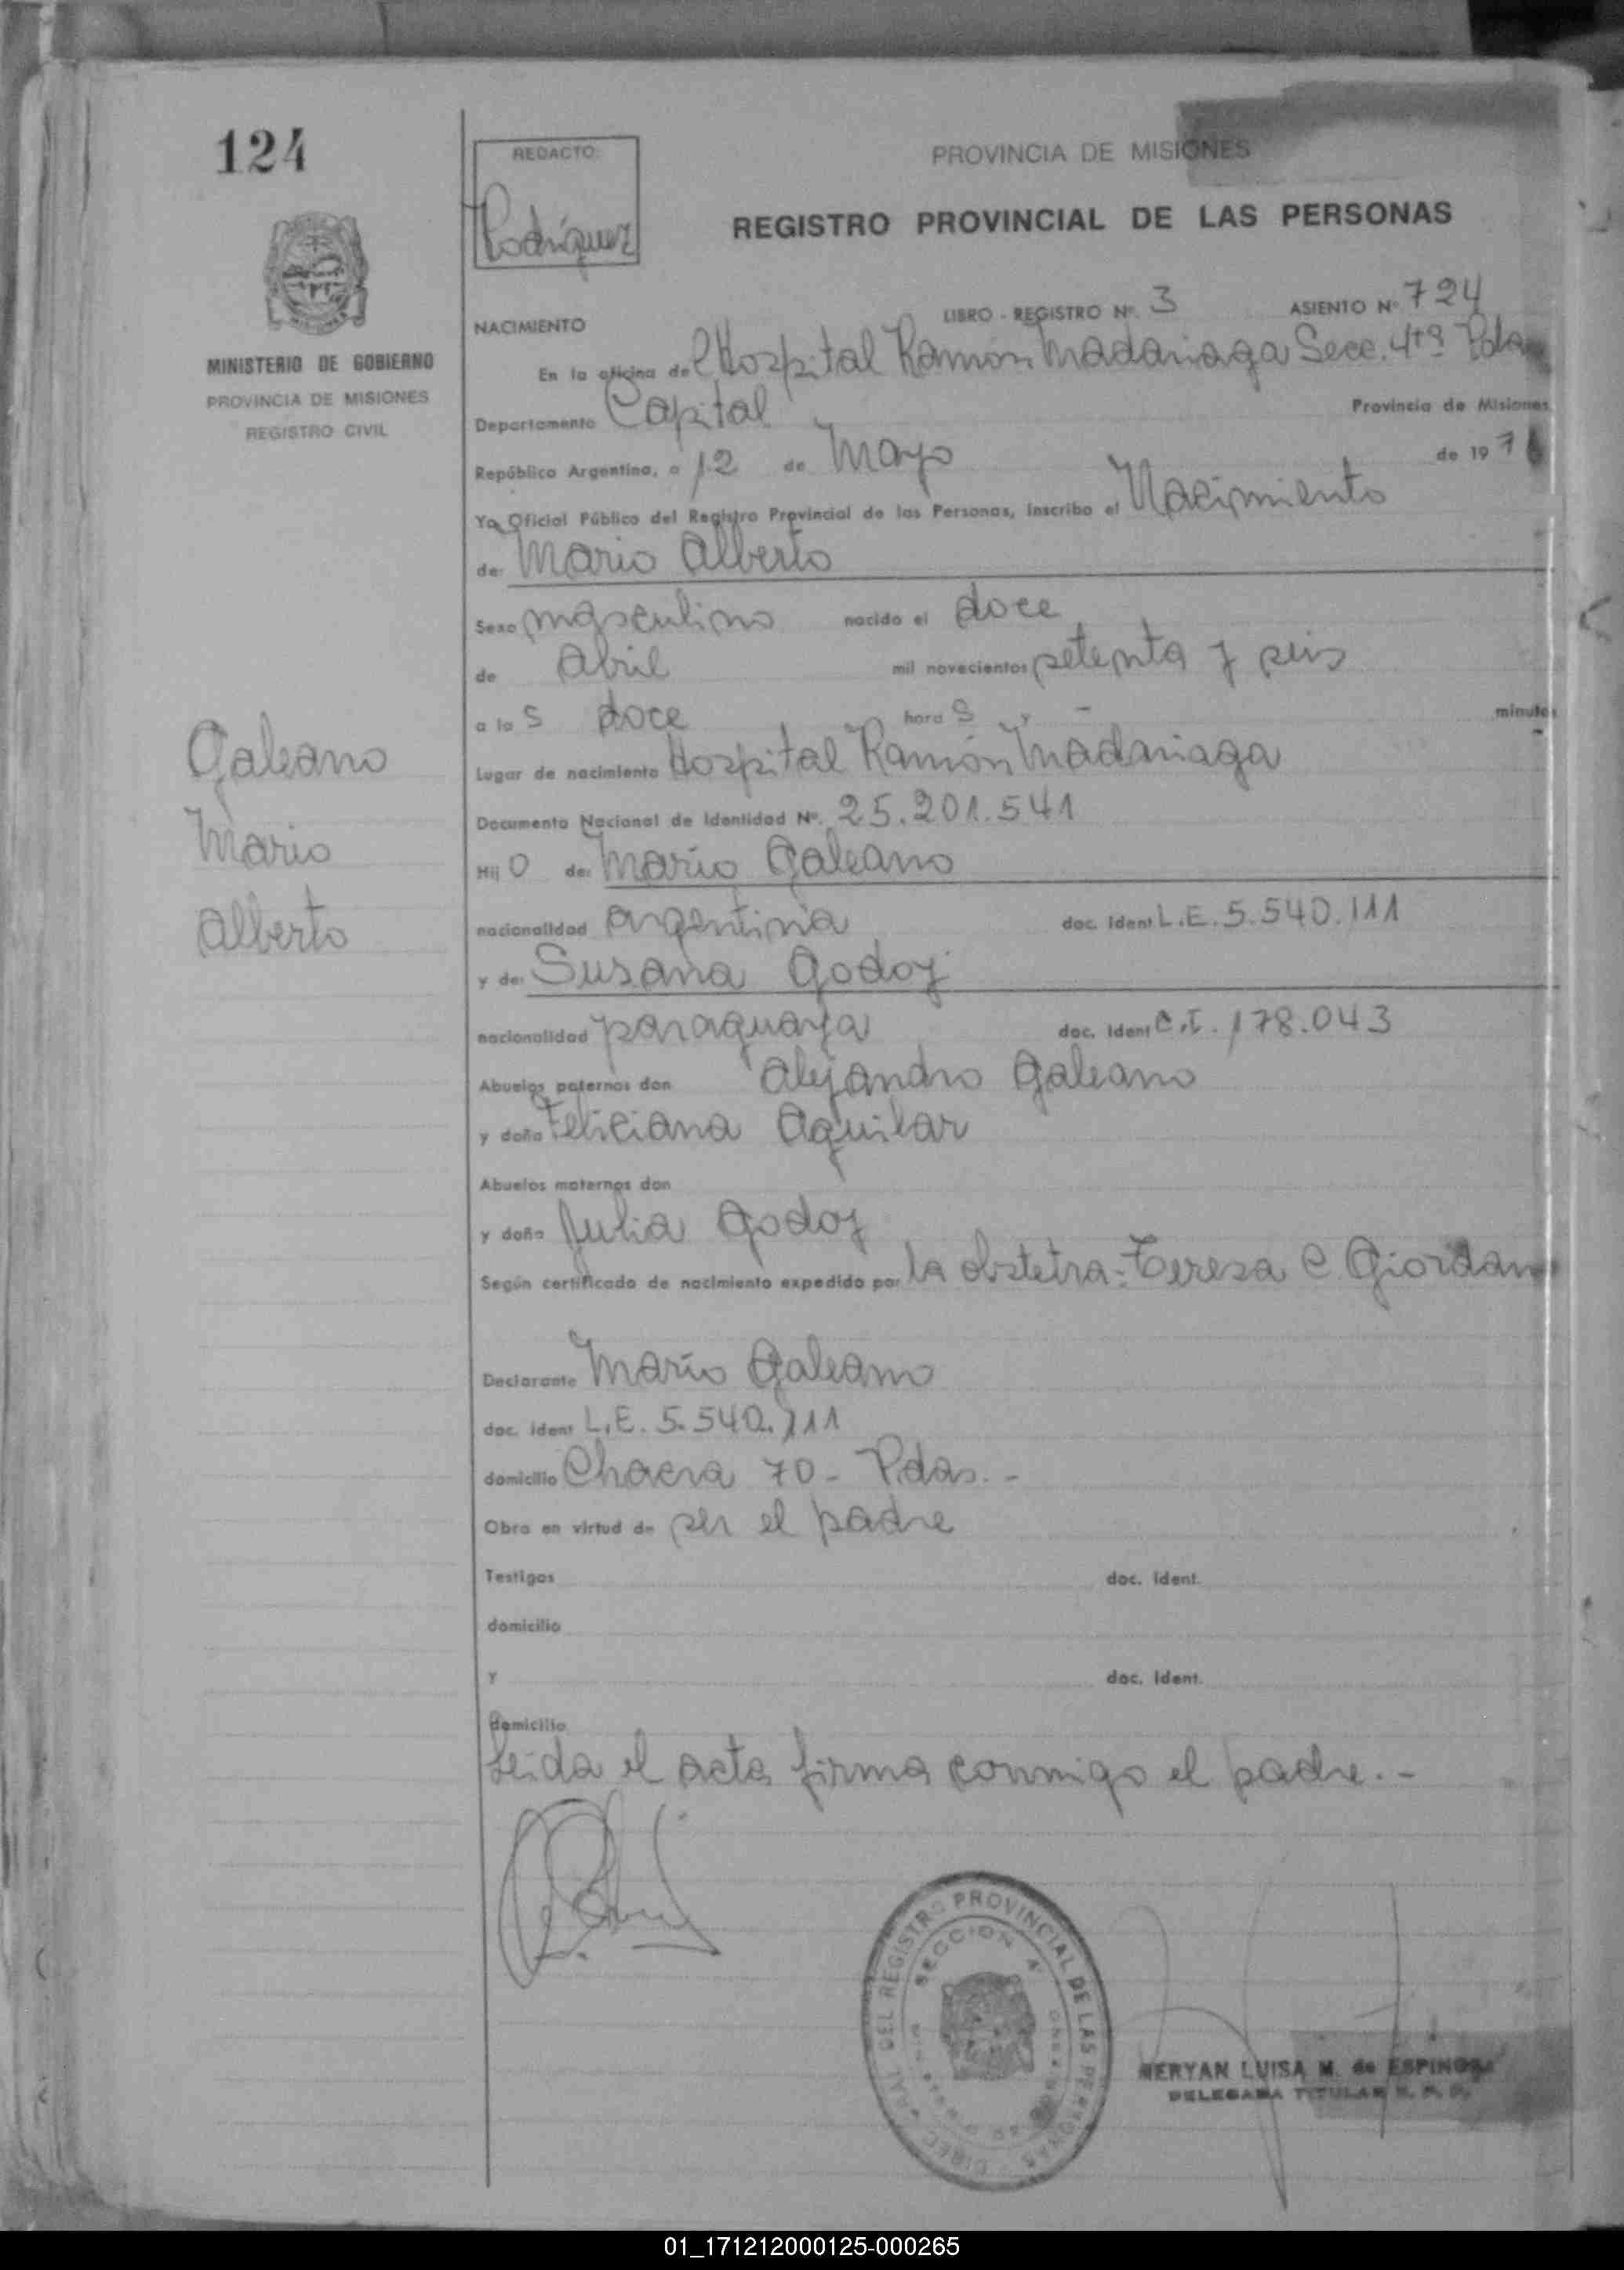 124
REDACTO:
Rodríguez
PROVINCIA DE MISIONES
REGISTRO PROVINCIAL DE LAS PERSONAS
MINISTERIO DE GOBIERNO
PROVINCIA DE MISIONES
REGISTRO CIVIL
NACIMIENTO
LIBRO - REGISTRO Nº. 3 ASIENTO Nº 724
En la oficina del Hospital Ramón Madariaga Secc. 4ta Pdas
Departamento Capital Provincia de Misiones,
República Argentina, a 12 de Mayo de 1976
Yo, Oficial Público del Registro Provincial de las Personas, inscribo el Nacimiento
de: Mario Alberto
Sexo masculino nacido el doce
de Abril mil novecientos setenta y seis
a las doce horas y - minutos
Lugar de nacimiento Hospital Ramón Madariaga
Documento Nacional de Identidad Nº. 25.201.541
Hijo de: Mario Galeano
nacionalidad argentina doc. ident L.E. 5.540.111
y de: Susana Godoy
nacionalidad paraguaya doc. ident C.I. 178.043
Abuelos paternos don Alejandro Galeano
y doña Feliciana Aquilar
Abuelos maternos don
y doña Julia Godoy
Según certificado de nacimiento expedido por la obstetra: Teresa C Giordano
Declarante Mario Galeano
doc. ident L.E. 5.540.111
domicilio Chacra 70 - Pdas. -
Obra en virtud de ser el padre
Testigos doc. ident.
domicilio
y doc. ident.
domicilio
Leida el acta firma conmigo el padre. -
Galeano
Mario
Alberto
DEL REGISTRO PROVINCIAL DE LAS PERSONAS
SECCION 4ª
MERYAN LUISA M. de ESPINOSA
DELEGADA TITULAR R. P. P.
01_171212000125-000265